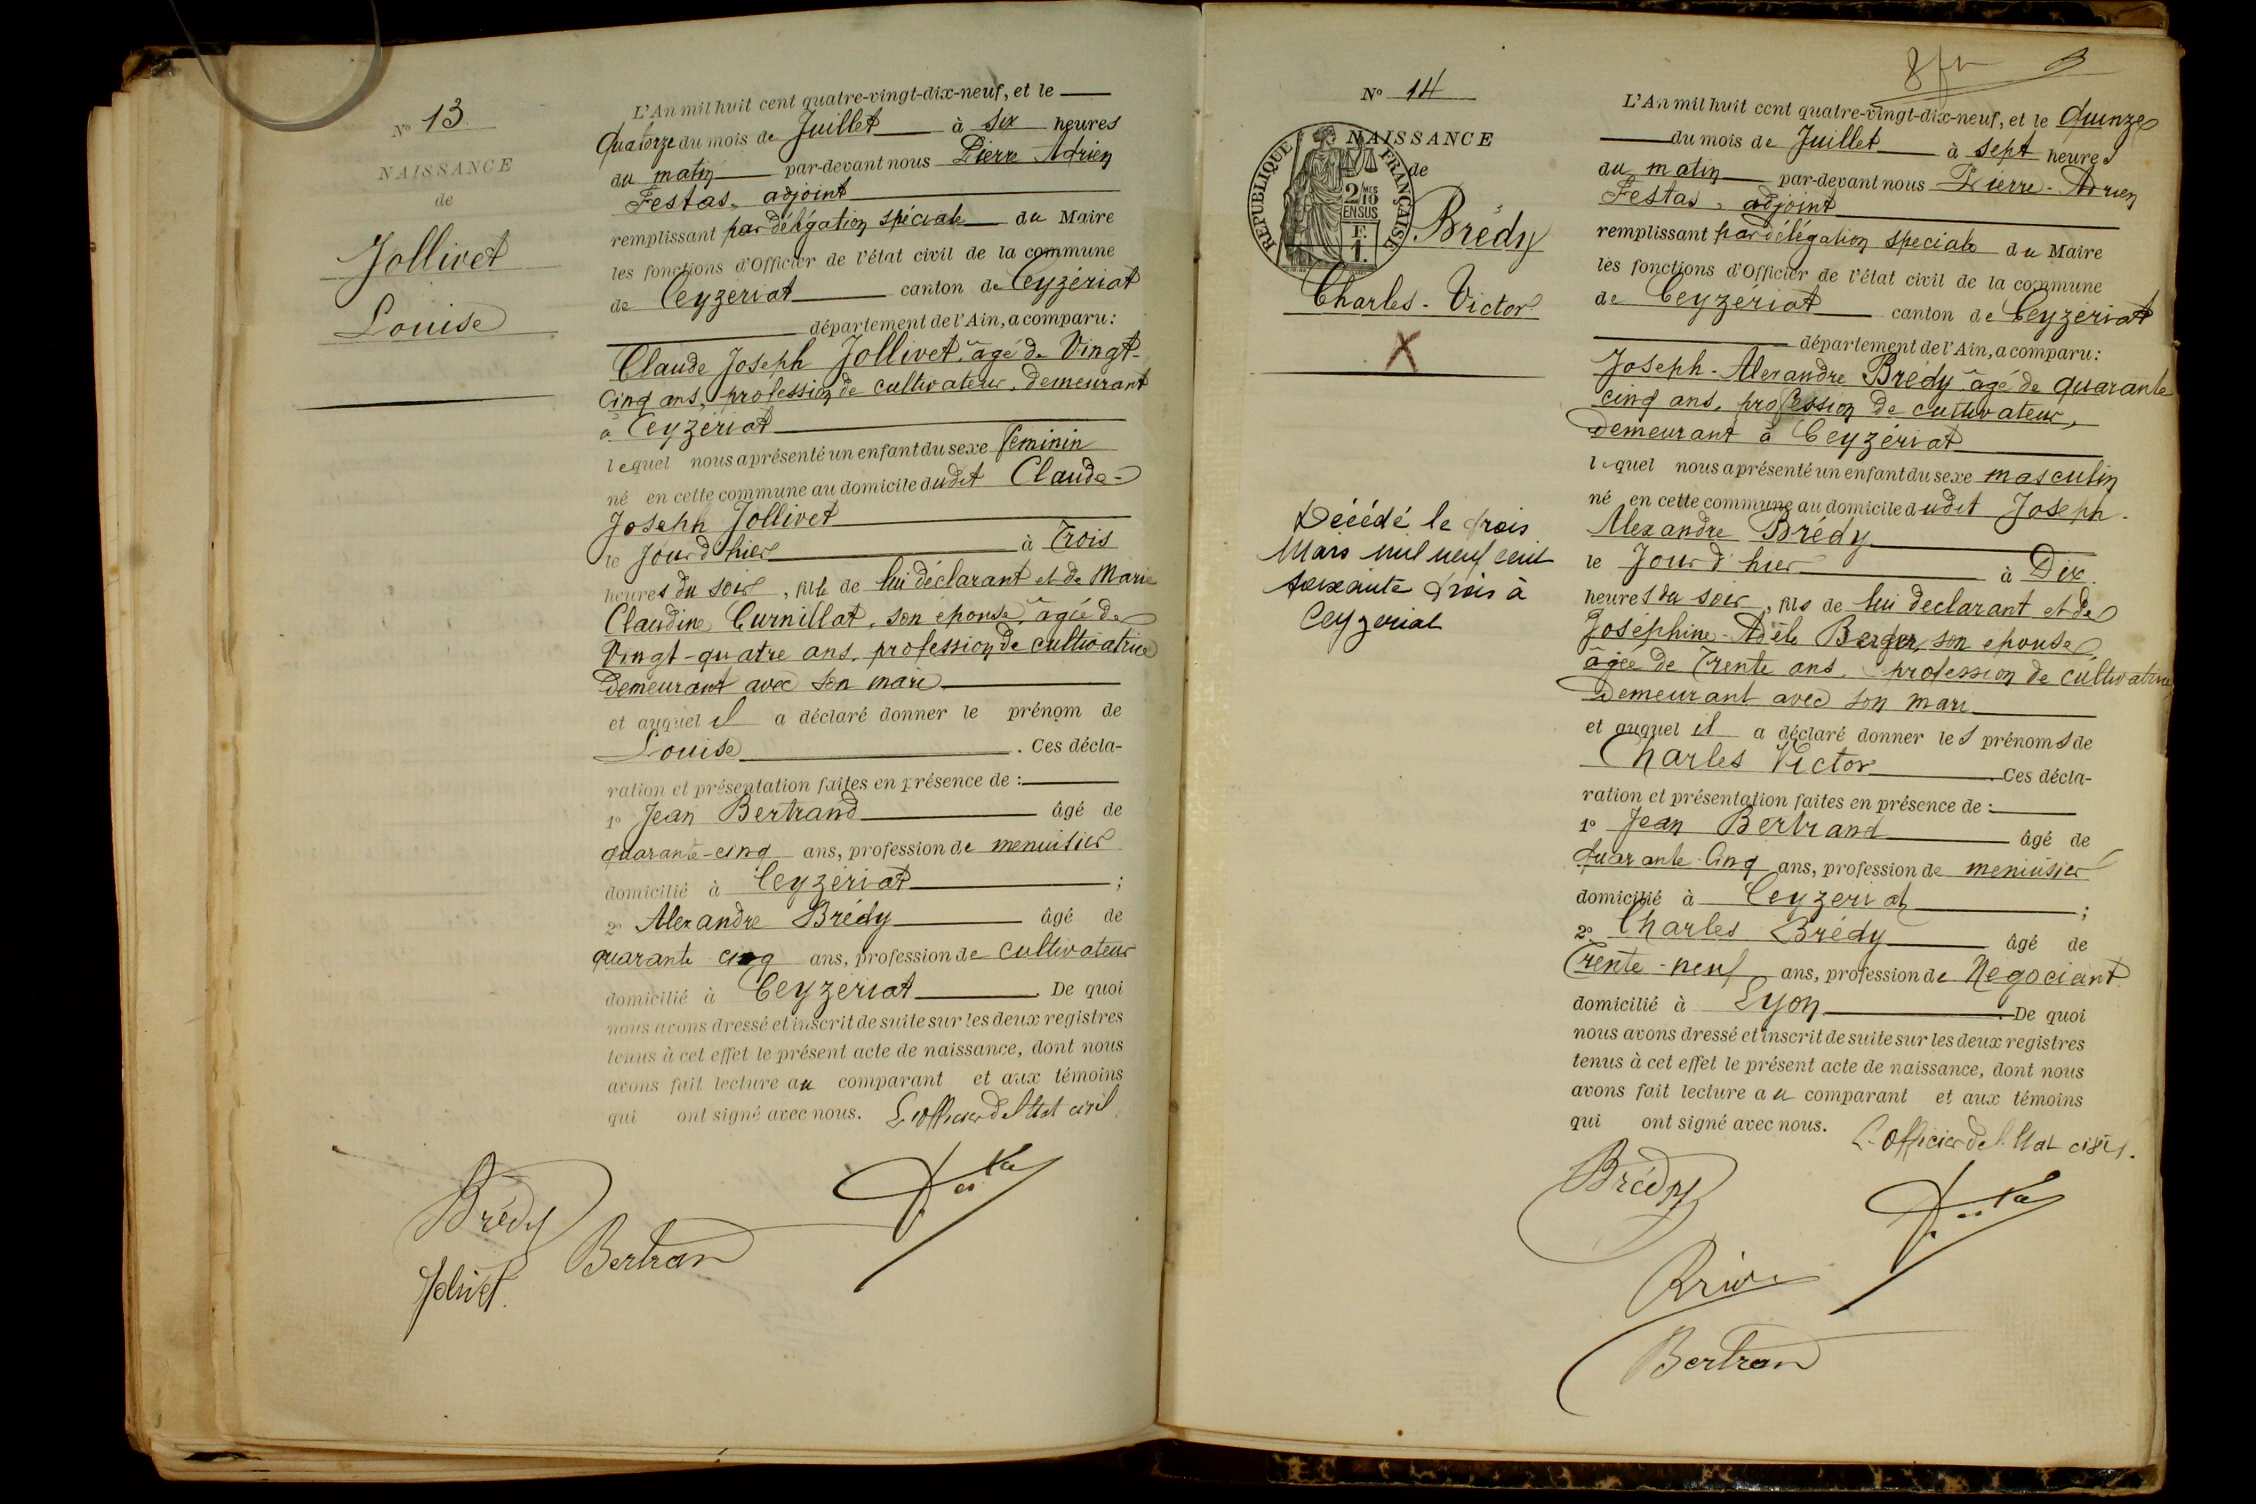 Nº 13
NAISSANCE
de
Jollivet
Louise
L'An mil huit cent quatre-vingt-dix-neuf, et le
Quatorze du mois de Juillet à six heures
du matin par-devant nous Pierre Adrien
Festas, adjoint
remplissant par délégation spéciale du Maire
les fonctions d'Officier de l'état civil de la commune
de Ceyzeriat canton de Ceyzériat
département de l'Ain, a comparu:
Claude Joseph Jollivet, âgé de Vingt-
cinq ans, profession de cultivateur, demeurant
à Ceyzériat
lequel nous a présenté un enfant du sexe feminin
né en cette commune au domicile dudit Claude-
Joseph Jollivet
le Jour d'hier à Trois
heures du soir, fille de lui déclarant et de Marie
Claudine Curnillat, son épouse, âgée de
Vingt-quatre ans, profession de cultivatrice
demeurant avec son mari
et auquel il a déclaré donner le prénom de
Louise. Ces décla-
ration et présentation faites en présence de:
1º Jean Bertrand âgé de
quarante-cinq ans, profession de menuisier
domicilié à Ceyzériat;
2º Alexandre Brédy âgé de
quarante cinq ans, profession de cultivateur
domicilié à Ceyzériat De quoi
nous avons dressé et inscrit de suite sur les deux registres
tenus à cet effet le présent acte de naissance, dont nous
avons fait lecture au comparant et aux témoins
qui ont signé avec nous. L'officier de l'Etat civil.
Brédy
Bertran
Jolivet.
8
Nº 14
NAISSANCE
de
RÉPUBLIQUE FRANÇAISE
2/10 EN SUS
F. 1.
Brédy
Charles-Victor
X
Décédé le trois
Mars mil neuf cent
soixante trois à
Ceyzeriat
L'An mil huit cent quatre-vingt-dix-neuf, et le Quinze
du mois de Juillet à sept heures
du matin par-devant nous Pierre-Adrien
Festas, adjoint
remplissant par délégation speciale du Maire
les fonctions d'Officier de l'état civil de la commune
de Ceyzériat canton de Ceyzériat
département de l'Ain, a comparu:
Joseph-Alexandre Brédy âgé de quarante
cinq ans, profession de cultivateur,
demeurant à Ceyzériat
lequel nous a présenté un enfant du sexe masculin
né en cette commune au domicile dudit Joseph-
Alexandre Brédy
le Jour d'hier à Dix
heures du soir, fils de lui declarant et de
Josephine-Adèle Berger, son epouse,
âgée de Trente ans, profession de cultivatrice
Demeurant avec son mari
et auquel il a déclaré donner les prénoms de
Charles Victor Ces décla-
ration et présentation faites en présence de:
1º Jean Bertrand âgé de
Quarante-Cinq ans, profession de menuisier
domicilié à Ceyzeriat;
2º Charles Brédy âgé de
Trente-neuf ans, profession de Négociant
domicilié à Lyon. De quoi
nous avons dressé et inscrit de suite sur les deux registres
tenus à cet effet le présent acte de naissance, dont nous
avons fait lecture au comparant et aux témoins
qui ont signé avec nous. L'Officier de l'Etat civil.
Brédy
Bertran